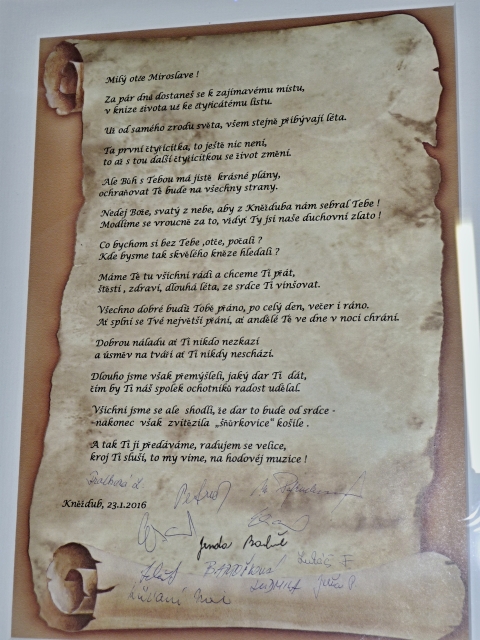 Milý otče Miroslave !
Za pár dně dostaneš se k zajímavému místu,
v knize života už ke čtyřicátému listu.
Už od samého zrodu světa, všem stejně přibývají léta.
Ta první čtyřicítka, to ještě nic není,
to až s tou další čtyřicítkou se život změní.
Ale Bůh s Tebou má jistě krásné plány,
ochraňovat Tě bude na všechny strany.
Nedej Bože, svatý z nebe, aby z Kněžduba nám sebral Tebe !
Modlíme se vroucně za to, vždyť Ty jsi naše duchovní zlato !
Co bychom si bez Tebe ,otče, počali ?
Kde bysme tak skvělého kněze hledali ?
Máme Tě tu všichni rádi a chceme Ti přát,
štěstí , zdraví, dlouhá léta, ze srdce Ti vinšovat.
Všechno dobré budiž Tobě přáno, po celý den, večer i ráno.
Ať splní se Tvé největší přání, ať andělé Tě ve dne v noci chrání.
Dobrou náladu ať Ti nikdo nezkazí
a úsměv na tváři ať Ti nikdy neschází.
Dlouho jsme však přemýšleli, jaký dar Ti dát,
čím by Ti náš spolek ochotníků radost udělal.
Všichni jsme se ale shodli, že dar to bude od srdce -
-nakonec však zvítězila „šňůrkovice“ košile .
A tak Ti ji předáváme, radujem se velice,
kroj Ti sluší, to my víme, na hodovéj muzice !
Kněždub, 23.1.2016
Jinda